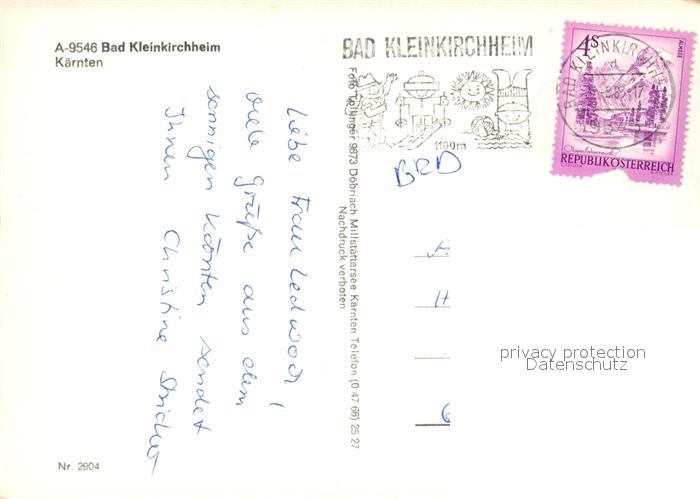 A-9546 Bad Kleinkirchheim
Kärnten
Liebe Frau Ledwoch!
viele Grüße aus dem
sonnigen Kärnten sendet
Ihnen Christine
Nr. 2904
Foto 9873 Döbriach Millstättersee Kärnten Telefon (0 47 66) 25 27
Nachdruck verboten
BAD KLEINKIRCHHEIM
1100m
BAD KLEINKIRCHHEIM
4S
ALMSEE
REPUBLIK ÖSTERREICH
BRD
A
H
6
privacy protection
Datenschutz